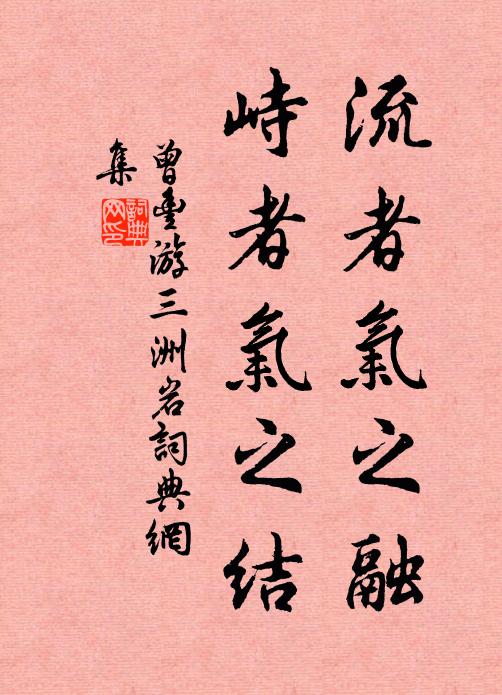 流者氣之融
峙者氣之结
曾豐游三洲岩詞典網
集
詞典网印